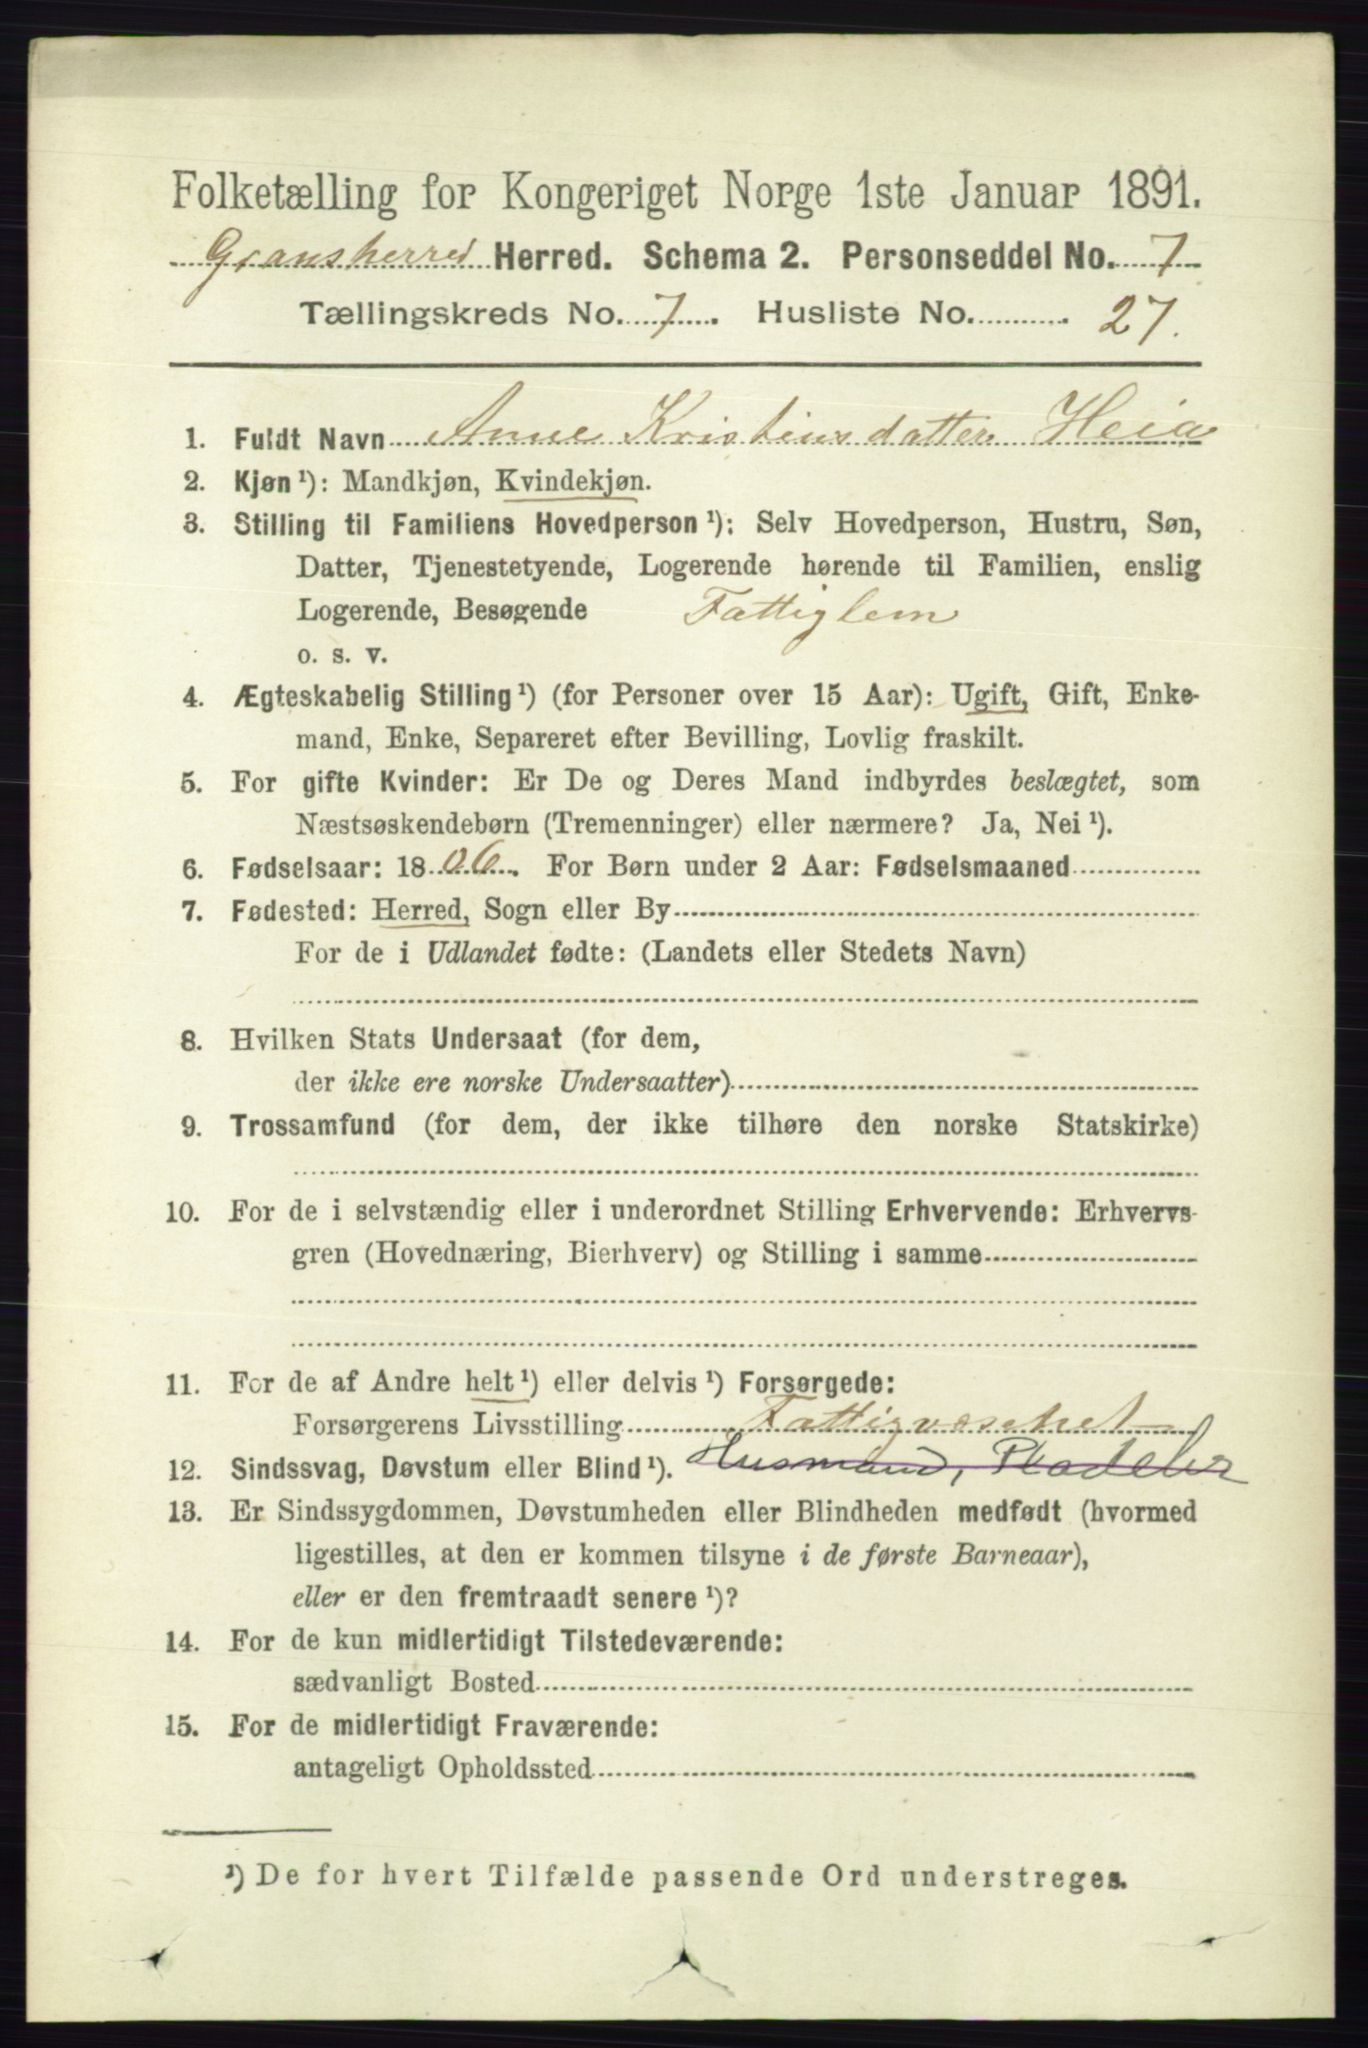 Folketælling for Kongeriget Norge 1ste Januar 1891.
Gransherred Herred. Schema 2. Personseddel No. 7
Tællingskreds No. 7. Husliste No. 27.
1. Fuldt Navn Anne Kristensdatter Heia
2. Kjøn ¹): Mandkjøn, Kvindekjøn.
3. Stilling til Familiens Hovedperson ¹): Selv Hovedperson, Hustru, Søn,
Datter, Tjenestetyende, Logerende hørende til Familien, enslig
Logerende, Besøgende Fattiglem
o. s. v.
4. Ægteskabelig Stilling ¹) (for Personer over 15 Aar): Ugift, Gift, Enke-
mand, Enke, Separeret efter Bevilling, Lovlig fraskilt.
5. For gifte Kvinder: Er De og Deres Mand indbyrdes beslægtet, som
Næstsøskendebørn (Tremenninger) eller nærmere? Ja, Nei ¹).
6. Fødselsaar: 1806. For Børn under 2 Aar: Fødselsmaaned
7. Fødested: Herred, Sogn eller By
For de i Udlandet fødte: (Landets eller Stedets Navn)
8. Hvilken Stats Undersaat (for dem,
der ikke ere norske Undersaatter)
9. Trossamfund (for dem, der ikke tilhøre den norske Statskirke)
10. For de i selvstændig eller i underordnet Stilling Erhvervende: Erhvervs-
gren (Hovednæring, Bierhverv) og Stilling i samme
11. For de af Andre helt ¹) eller delvis ¹) Forsørgede:
Forsørgerens Livsstilling Fattigvæsenet
12. Sindssvag, Døvstum eller Blind ¹). Husmand,
13. Er Sindssygdommen, Døvstumheden eller Blindheden medfødt (hvormed
ligestilles, at den er kommen tilsyne i de første Barneaar),
eller er den fremtraadt senere ¹)?
14. For de kun midlertidigt Tilstedeværende:
sædvanligt Bosted
15. For de midlertidigt Fraværende:
antageligt Opholdssted
¹) De for hvert Tilfælde passende Ord understreges.